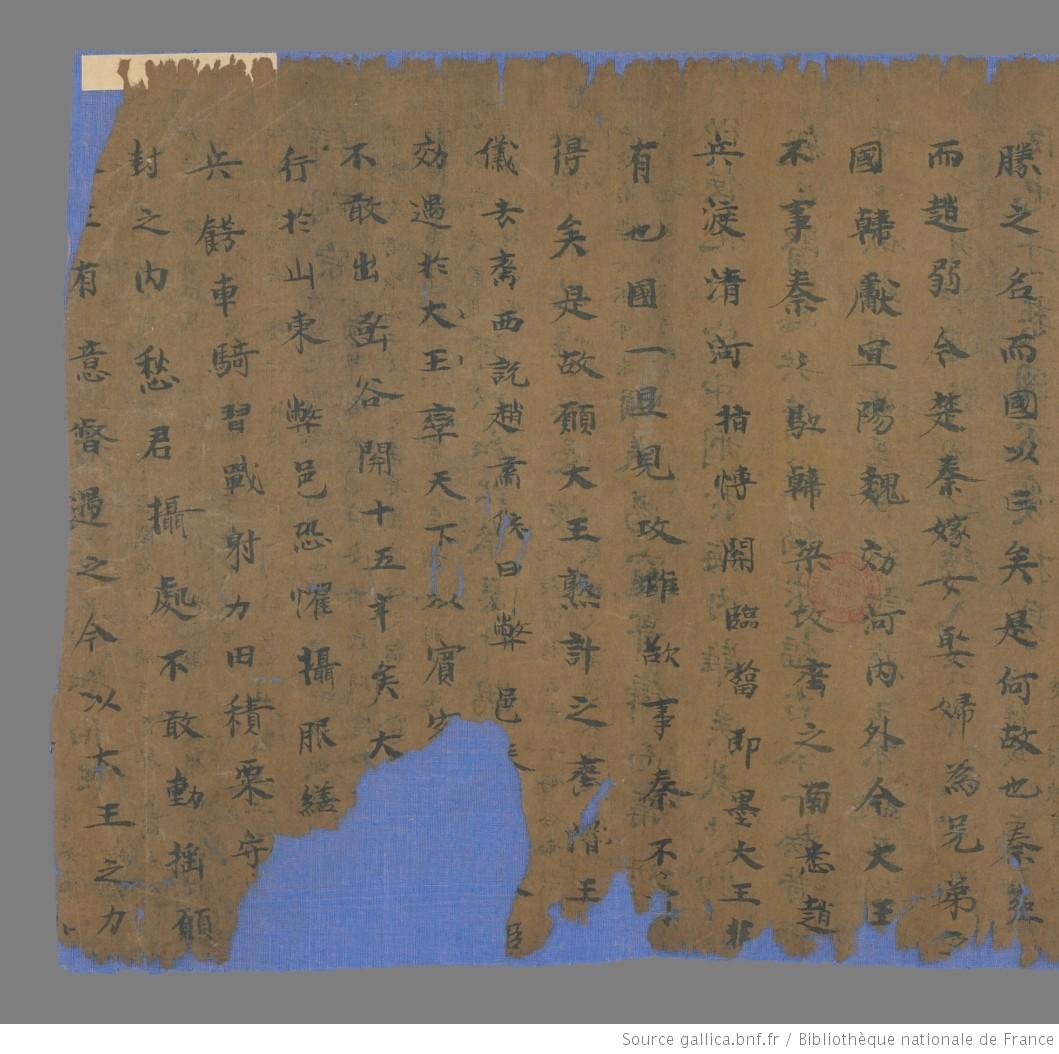 勝之名而國以亡矣是何故也秦強
而趙弱今楚秦嫁女娶婦為兄弟之
國韓獻宜陽魏効河內外今大王
不事秦秦駈韓梁攻齊之南悉趙
兵渡清河指慱開臨菑即墨大王非
有也國一旦見攻雖欲事秦不可
得矣是故願大王熟計之齊湣王
儀去齊西說趙肅侯曰弊邑秦 臣
効過於大王率天下以賓
不敢出函谷開十五年矣大
行於山東弊邑恐懼攝服繕
兵鍔車騎習戰射力田積粟守
封之內愁君攝處不敢動揺願
有意督過之今以大王之力
Source gallica.bnf.fr / Bibliothèque nationale de France